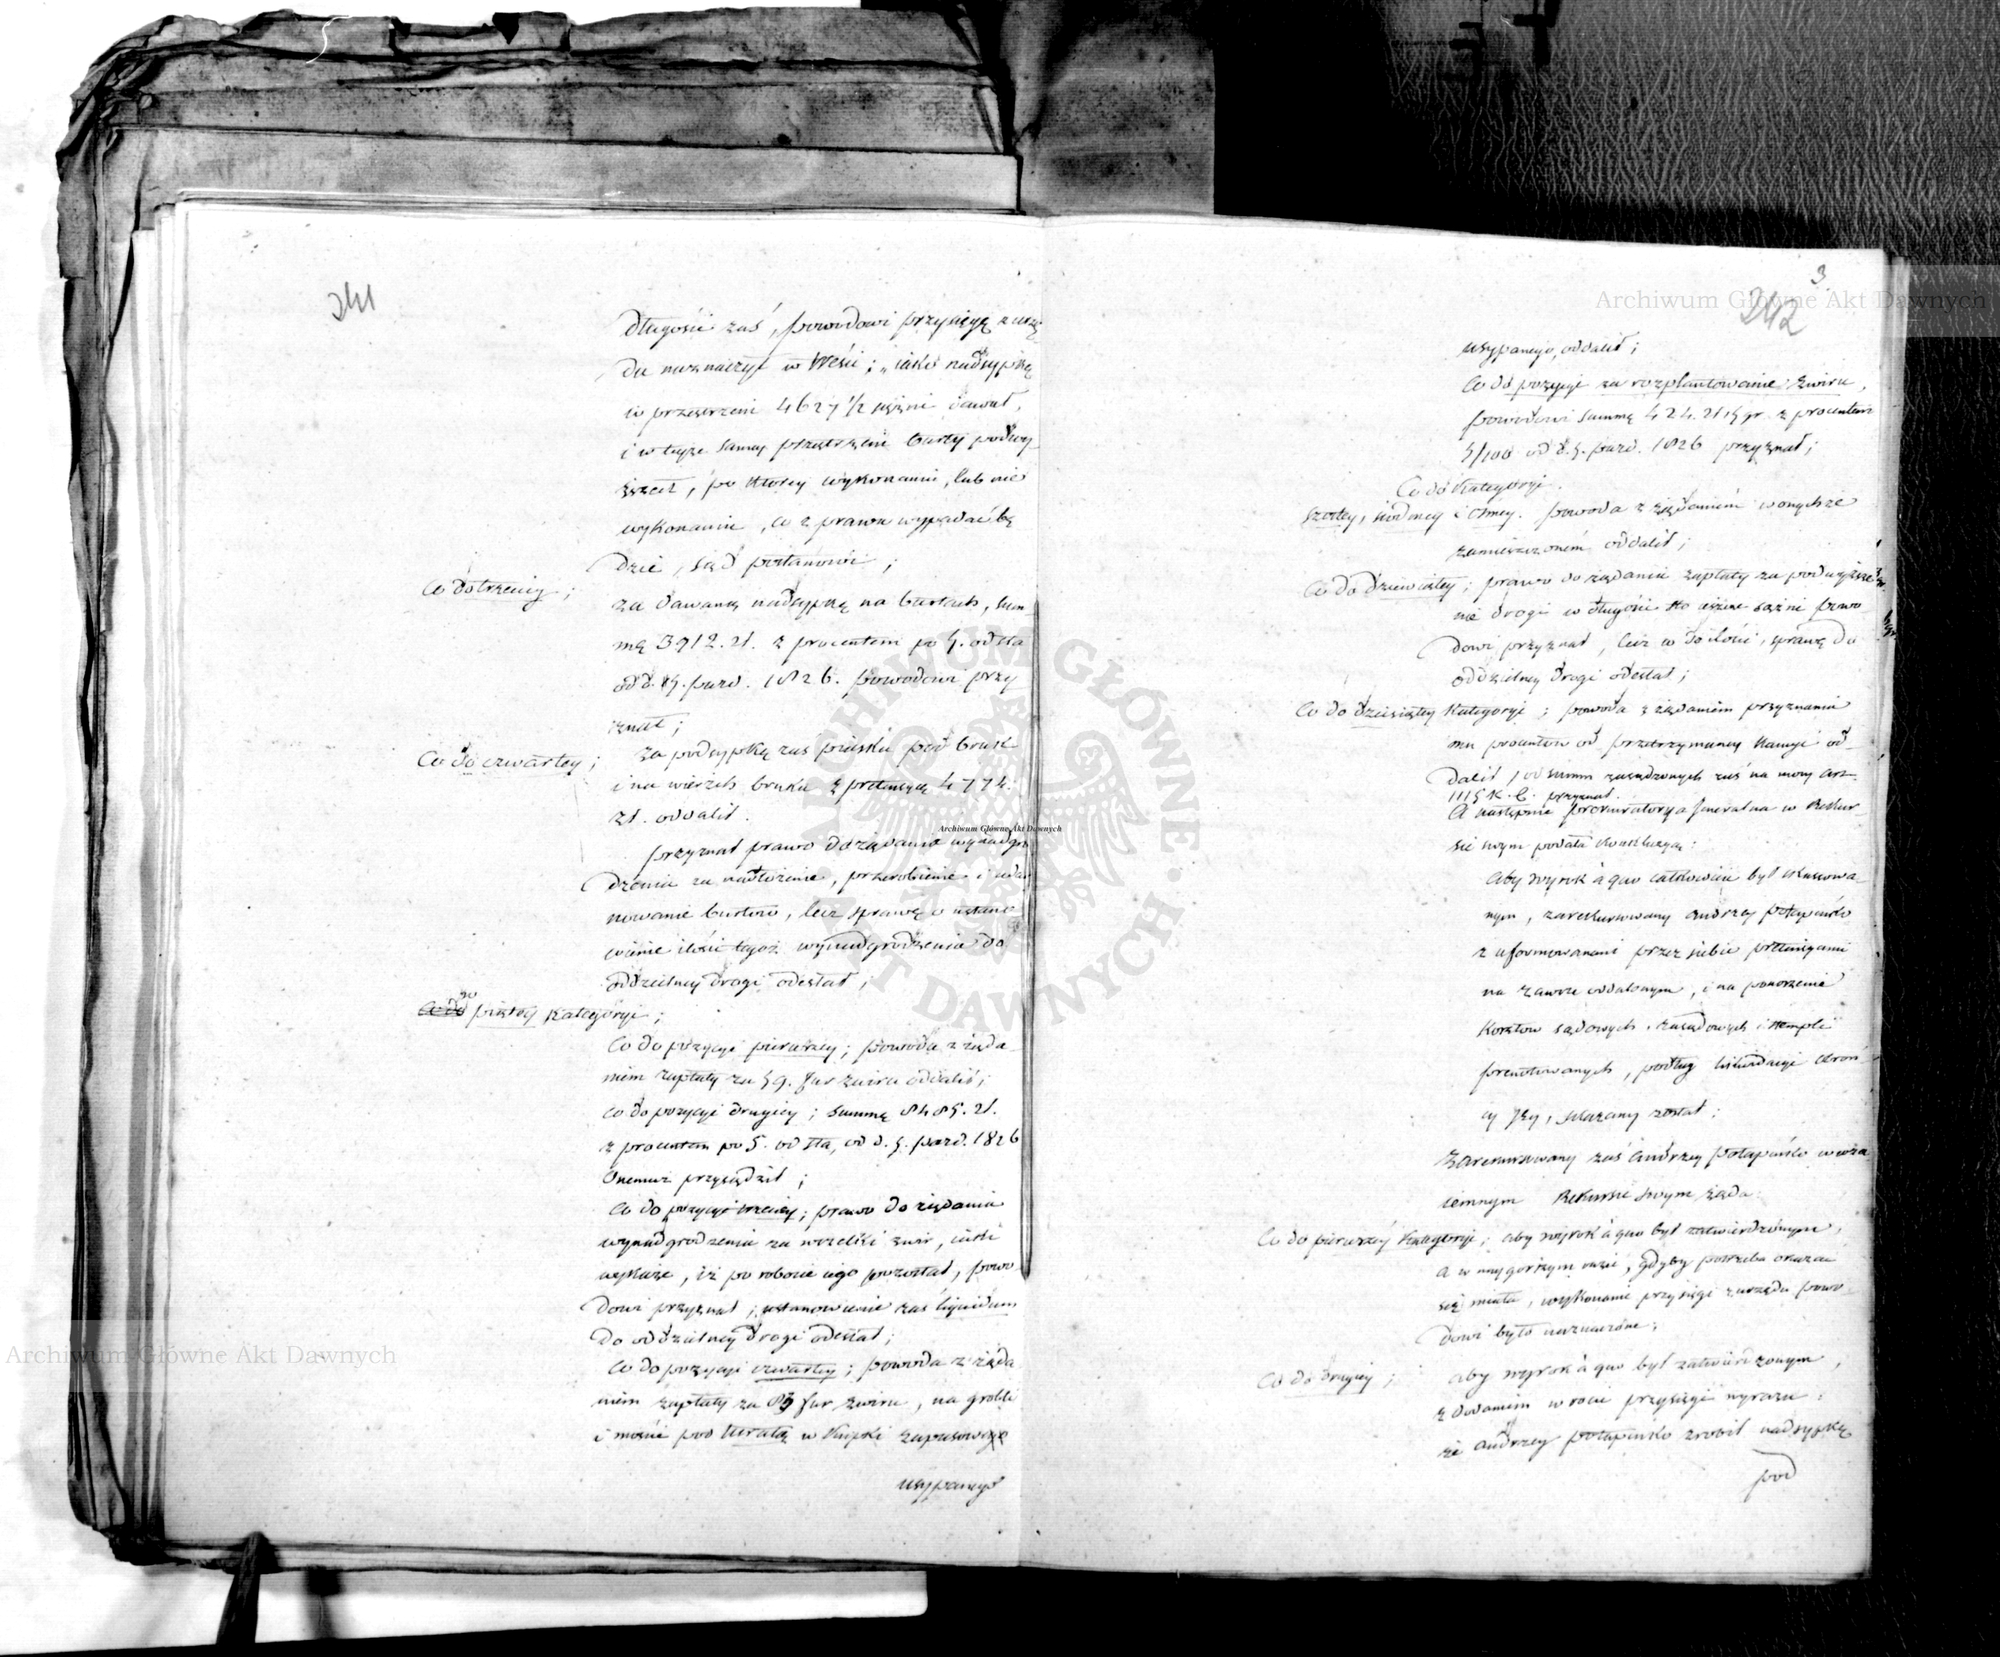 241
długości zaś, powodowi przysięgę z urzę
du naznaczył w treści; „jako nadsypkę
w przestrzeni 4627 1/2 sążni dawał,
i w teyże samey przestrzeni burty podwy-
ższał, po którey wykonaniu, lub nie
wykonaniu, co z prawa wypadać bę
dzie, Sąd postanowi;
Co do trzeciey;
za dawaną nadsypkę na burtach, sum
mę 3912. zł. z procentem po 5. od sta
od d. 5. pazd. 1826. powodowi przy
znał;
Co do czwartey;
za podsypkę zaś piasku pod bruk
i na wierzch bruku z pretensyą 4774.
zł. oddalił.
przyznał prawo do żądania wynadgro
dzenia za nadłożenie, przerobienie i
nowanie burtów, lecz sprawę o ustano
wienie ilości tegoż wynadgrodzenia do
oddzielney drogi odesłał;
Co do piątey Kategoryi;
Co do pozycyi pierwszey; powoda z żąda
niem zapłaty za 59. fur żwiru oddalił;
Co do pozycyi drugiey; summę 8485. zł.
z procentem po 5. od sta, od d. 5. pazd. 1826
Onemuż przysądził;
Co do pozycyi trzeciey; prawo do żądania
wynadgrodzenia za wszelki żwir, jaki
wykaże, iż po robocie iego pozostał, powo
dowi przyznał; ustanowienie zaś liquidum
do oddzielney drogi odesłał;
Co do pozycyi czwartey; powoda z żąda
niem zapłaty za 83 fur żwiru, na grobli
i moście pod w Kupki
usypanego
3
242
usypanego, oddalił;
Co do pozycyi za rozplantowanie żwiru,
powodowi summę 424. zł. 15 gr. z procentem
5/100 od d. 5. pazd. 1826 przyznał;
Co do Kategoryi.
szostey, siódmey i osmey. powoda z żądaniem w onychże
zamieszczonem oddalił;
Co do dziewiątey; prawo do żądania zapłaty za podwyższe
nie drogi w długości sto sążni powo
dowi przyznał, lecz w do ilości, sprawę do
oddzielney drogi odesłał;
Co do dziesiątey Kategoryi; powoda z żądaniem przyznania
mu procentów od przetrzymaney Kaucyi od-
dalił, od summ zasądzonych zaś na mocy art.
1115 K. C. przyznał.
A następnie Prokuratorya Jeneralna w Rekur-
sie swym podała Konkluzyą:
Aby wyrok à quo całkowicie był skassowa-
nym, zarekursowany Andrzey Potapińko
z uformowanemi przez siebie pretensyami
na zawsze oddalonym, i na ponoszenie
Kosztów sądowych i stempli
prenotowanych, podług likwidacyi Obroń
cy Jey, skazany został;
Zarekursowany zaś Andrzey Potapińko w wza
iemnym Rekursie swym żąda:
Co do pierwszey Kategoryi; aby wyrok à quo był zatwierdzonym,
a w naygorszym razie, gdyby potrzeba okazać
się miała, wykonanie przysięgi z urzędu powo-
dowi było naznaczone;
Co do drugiey;
aby wyrok à quo był zatwierdzonym,
z dodaniem w rocie przysięgi wyrazu:
że Andrzey Potapińko zrobił nadsypkę
pod
Archiwum Główne Akt Dawnych
Archiwum Główne Akt Dawnych
Archiwum Główne Akt Dawnych
ARCHIWUM GŁÓWNE · AKT DAWNYCH ·